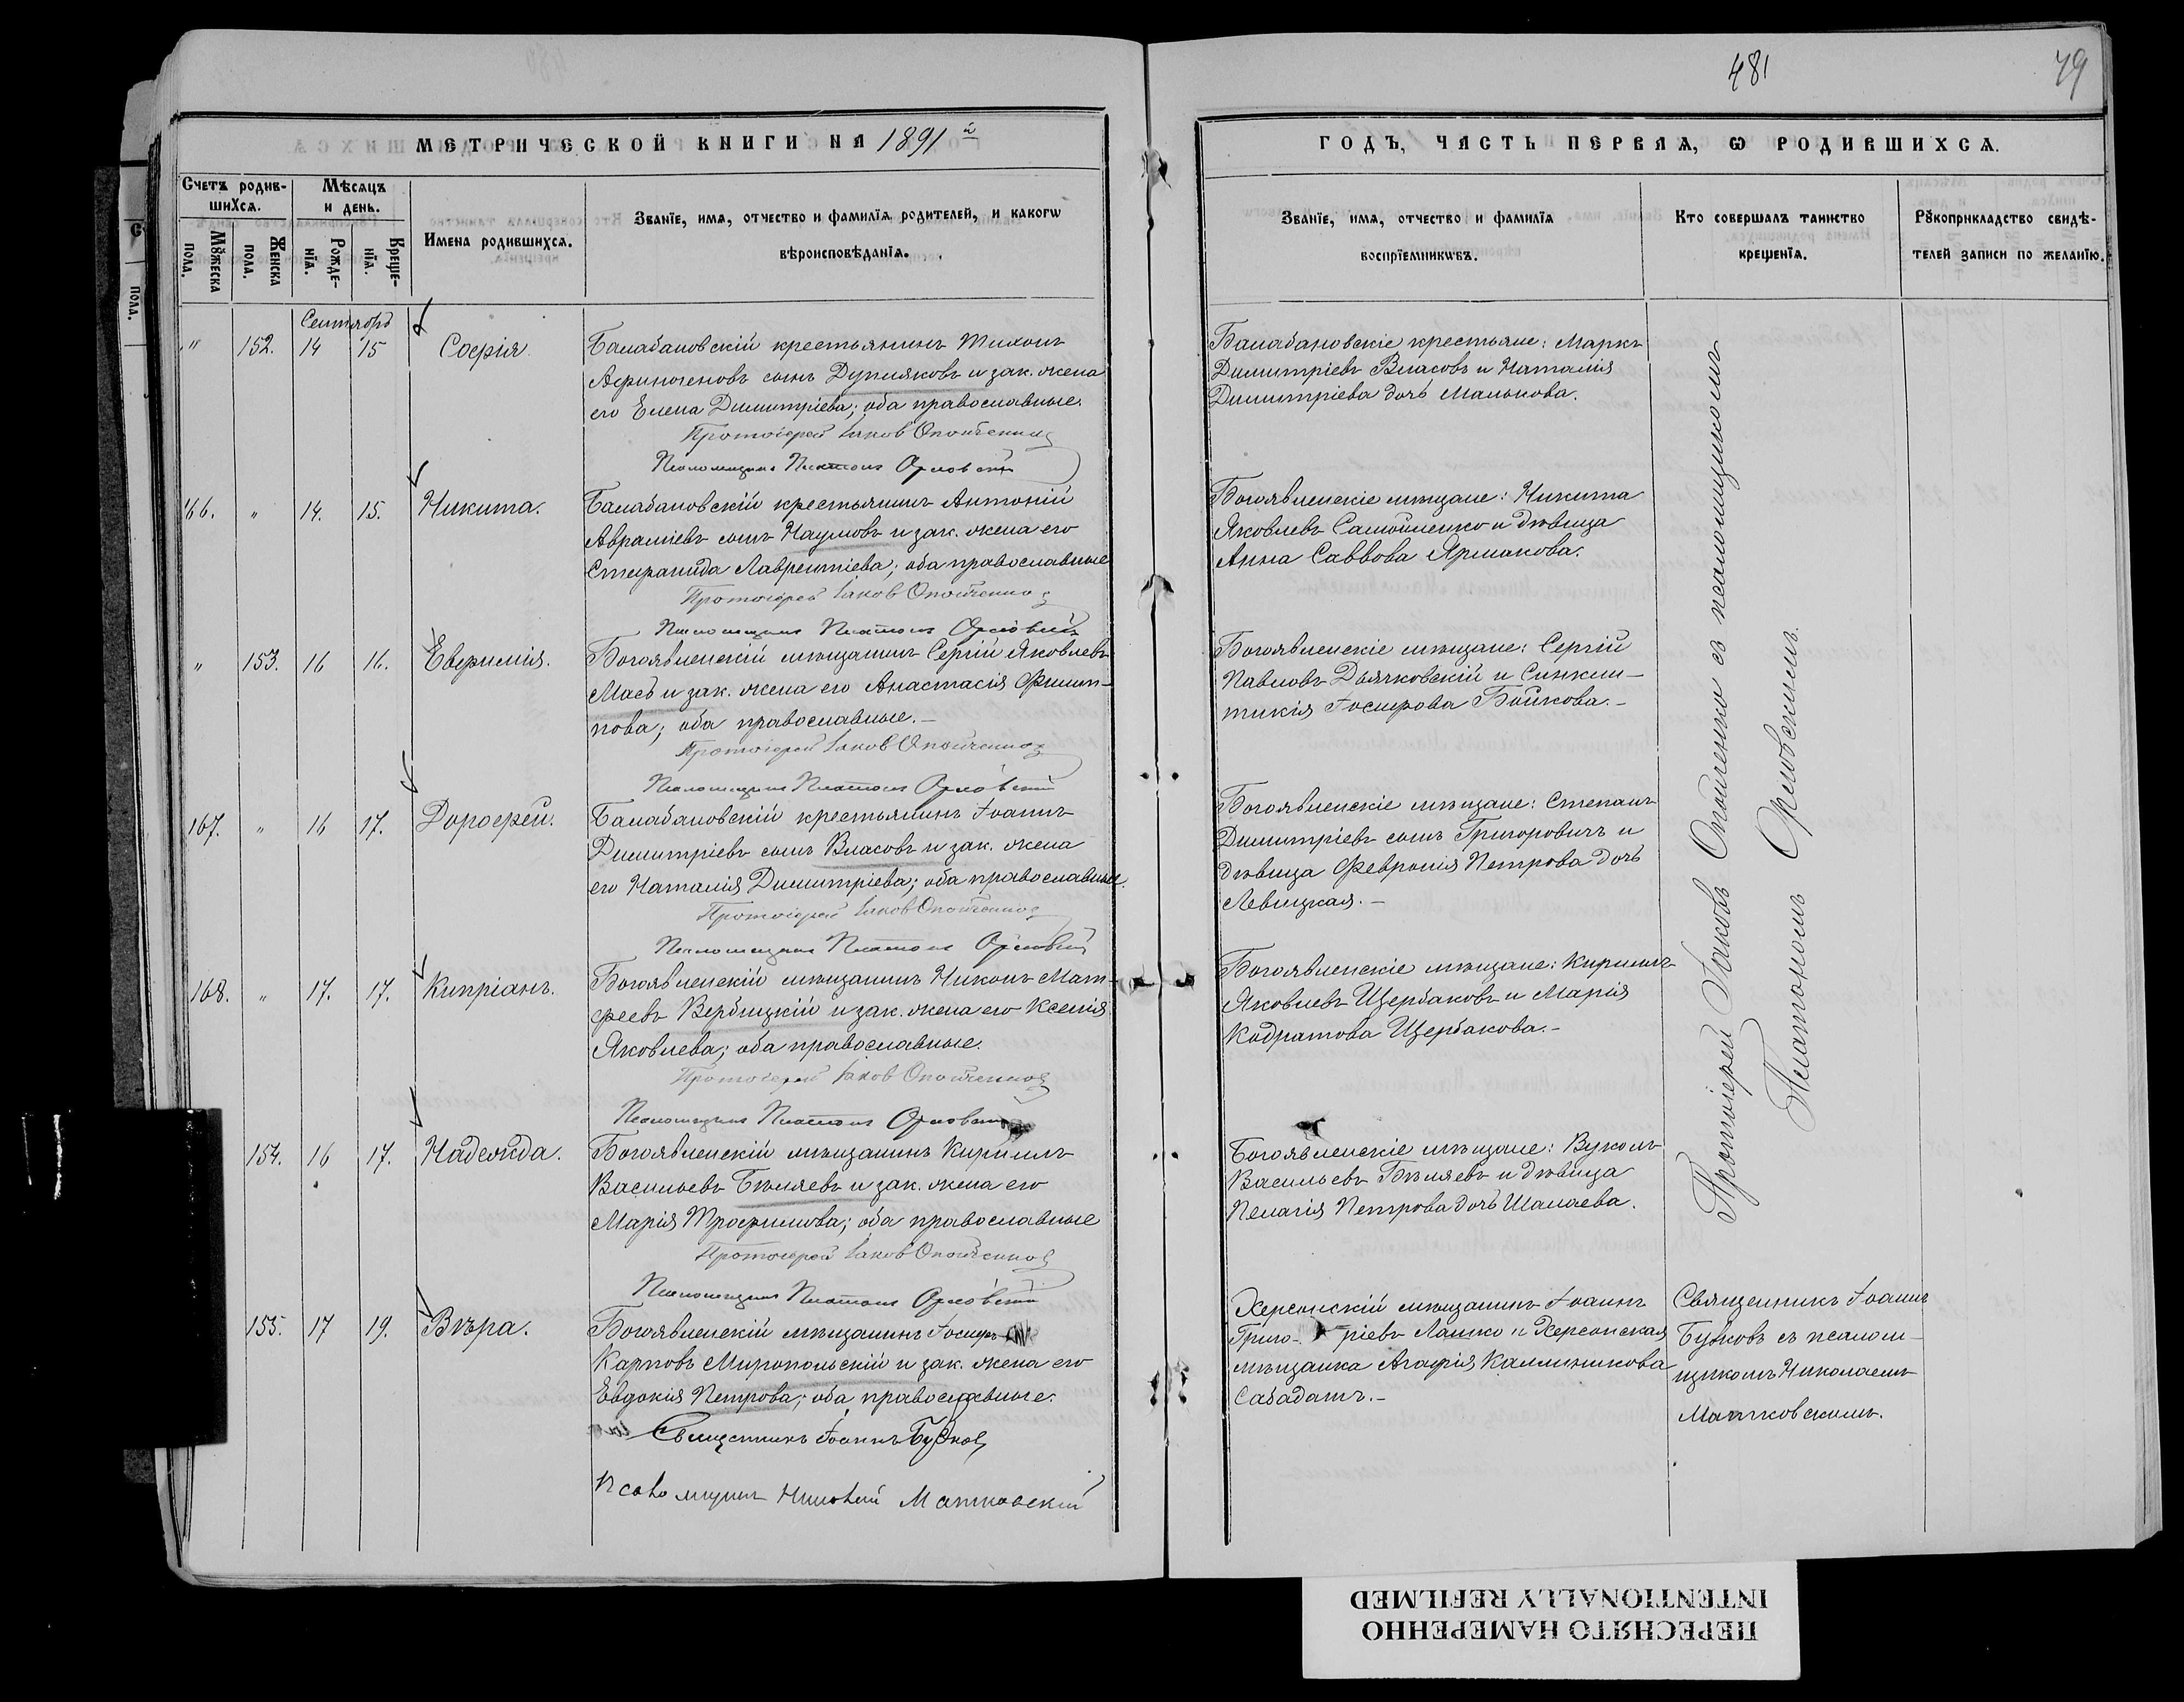 481
79
МЕТРИЧЕСКОЙ КНИГИ НА 1891й
ГОДЪ, ЧАСТЬ ПЕРВАЯ, Ѡ РОДИВШИХСЯ.
Счетъ родив-
шихся.
Мѣсяцъ
и день.
Мꙋжеска
пола.
Женска
пола.
Рожде-
нїя.
Креще-
нїя.
Имена родившихся.
Званїе, имя, отчество и фамилїя родителей, и какогѡ
вѣроисповѣданїя.
Званїе, имя, отчество и фамилїя
воспрїемникѡвъ.
Кто совершалъ таинство
крещенїя.
Рꙋкоприкладство свидѣ-
телей записи по желанїю.
Сентябрь
" 152. 14 15 Софія
Балабановскій крестьянинъ Тихонъ
Афиногеновъ сынъ Дупляковъ и зак. жена
его Елена Димитріева; оба православные.
Протоіерей Іаковъ Опотченко
Псаломщикъ Платонъ Орловскій
Балабановскіе крестьяне: Маркъ
Димитріевъ Власовъ и Наталія
Димитріева дочь Малькова.
166. " 14. 15. Никита.
Балабановскій крестьянинъ Антоній
Авраміевъ сынъ Наумовъ и зак. жена его
Стефанида Лаврентіева; оба православные
Протоіерей Іаковъ Опотченко
Псаломщикъ Платонъ Орловскій
Богоявленскіе мѣщане: Никита
Яковлевъ Самойленко и дѣвица
Анна Саввова Ярмакова.
" 153. 16 16. Евфимія.
Богоявленскій мѣщанинъ Сергій Яковлевъ
Масъ и зак. жена его Анастасія Филип-
пова; оба православные.-
Протоіерей Іаковъ Опотченко
Псаломщикъ Платонъ Орловскій
Богоявленскіе мѣщане: Сергій
Павловъ Дьячковскій и Синкли-
тикія Іосифова Бойкова.-
167. " 16 17. Дорофей.
Балабановскій крестьянинъ Іоаннъ
Димитріевъ сынъ Власовъ и зак. жена
его Наталія Димитріева; оба православные.
Протоіерей Іаковъ Опотченко
Псаломщикъ Платонъ Орловскій
Богоявленскіе мѣщане: Степанъ
Димитріевъ сынъ Григоровичъ и
дѣвица Февронія Петрова дочь
Левицкая.-
168. " 17. 17. Кипріанъ.
Богоявленскій мѣщанинъ Никонъ Мат-
феевъ Вербицкій и зак. жена его Ксенія
Яковлева; оба православные.
Протоіерей Іаковъ Опотченко
Псаломщикъ Платонъ Орловскій
Богоявленскіе мѣщане: Кириллъ
Яковлевъ Щербаковъ и Марія
Кодратова Щербакова.-
154. 16 17. Надежда.
Богоявленскій мѣщанинъ Кириллъ
Васильевъ Бѣляевъ и зак. жена его
Марія Трофимова; оба православные
Протоіерей Іаковъ Опотченко
Псаломщикъ Платонъ Орловскій
Богоявленскіе мѣщане: Вуколъ
Васильевъ Бѣляевъ и дѣвица
Пелагія Петрова дочь Шалаева.
Протоіерей Іаковъ Опотченко съ псаломщикомъ
Платономъ Орловскимъ.
155. 17 19. Вѣра.
Богоявленскій мѣщанинъ Іосифъ
Карповъ Миропольскій и зак. жена его
Евдокія Петрова; оба православные.
Священникъ Іоаннъ Будковъ
Псаломщикъ Николай Матковскій
Херсонскій мѣщанинъ Іоаннъ
Григо- ріевъ Лашко и Херсонская
мѣщанка Агафія Каллиникова
Сабадашъ.-
Священникъ Іоаннъ
Будковъ съ псалом-
щикомъ Николаемъ
Матковскимъ.
ПЕРЕСНЯТО НАМЕРЕННО
INTENTIONALLY REFILMED